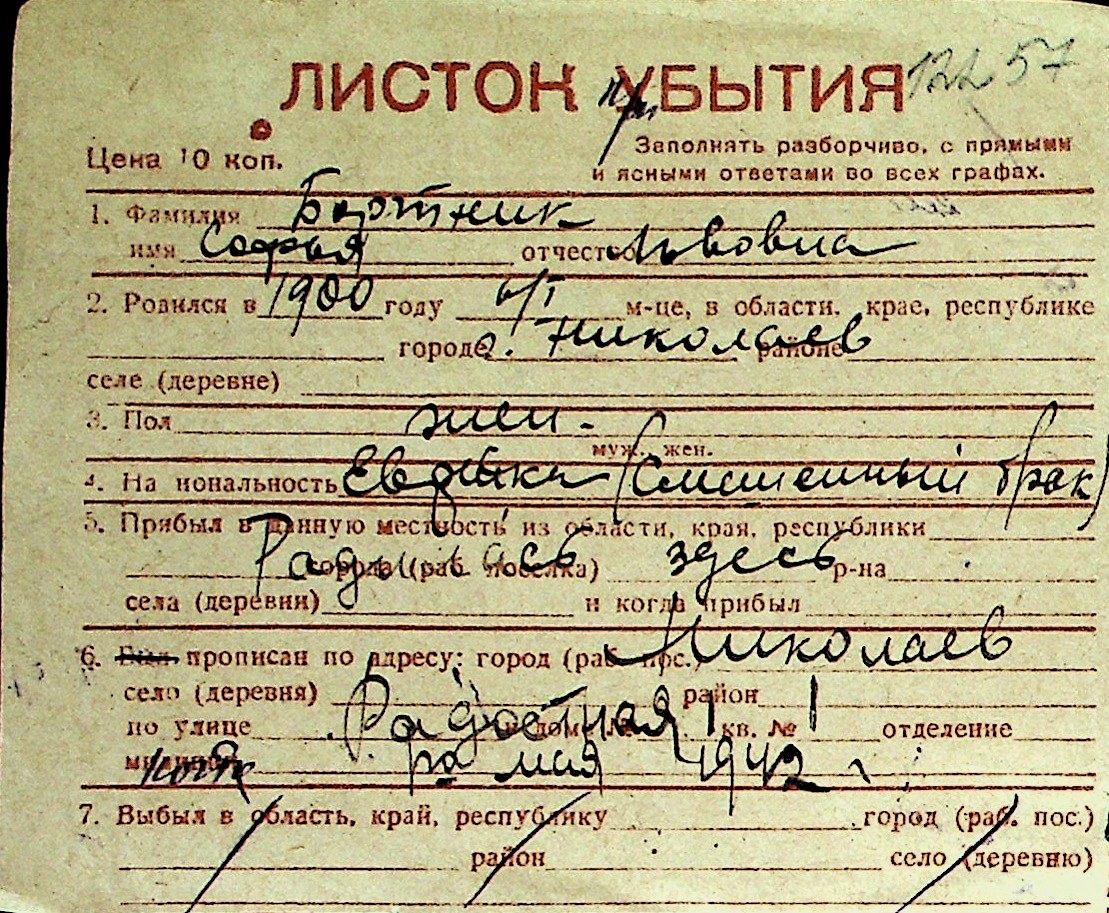 122 57
ЛИСТОК УБЫТИЯ
при
Цена 10 коп.
Заполнять разборчиво, с прямыми
и ясными ответами во всех графах.
1. Фамилия Бортник
имя Софья отчество Львовна
2. Родился в 1900 году 6/I м-це, в области, крае, республике
городе г. Николаев районе
селе (деревне)
3. Пол жен.
муж. жен.
4. На иональность Еврейка (Смешенный брак)
5. Прибыл в данную местность из области, края, республики
Радилась здесь
города (раб. поселка) р-на
села (деревни) и когда прибыл
6. Был прописан по адресу: город (раб. пос.) Николаев
село (деревня) район
по улице Радостная в доме № 1 кв. № 1 отделение
милиции мая 1942 г.
7. Выбыл в область, край, республику город (раб. пос.)
район село (деревню)